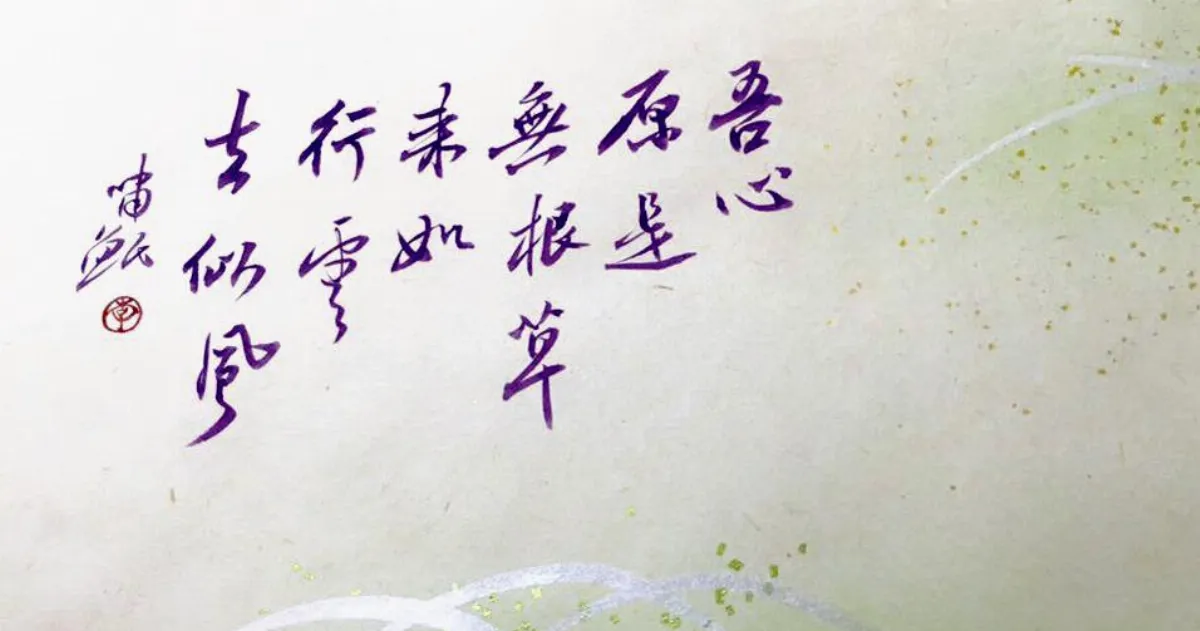 吾心
原是
無根草
来如
行雲
去似風